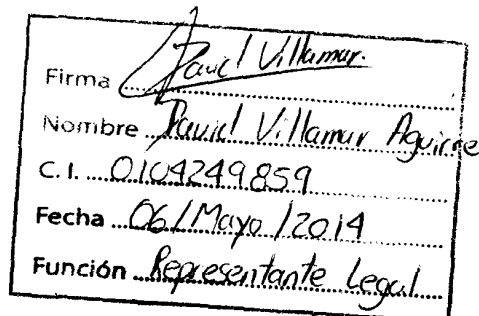 Firma David Villamar.
Nombre David Villamar Aguirre
C. I. 0104249859
Fecha 06/Mayo/2014
Función Representante Legal